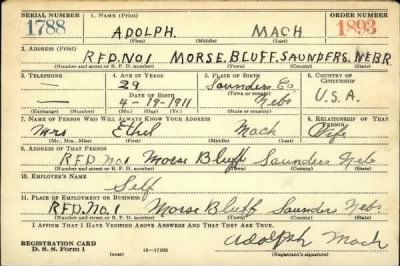 SERIAL NUMBER 1. NAME (Print) ORDER NUMBER
1788 ADOLPH. MACH 1893
(First) (Middle) (Last)
2. ADDRESS (Print)
RFD. NO 1 MORSE. BLUFF. SAUNDERS. NEBR
(Number and street or R. F. D. number) (Town) (County) (State)
3. TELEPHONE 4. AGE IN YEARS 5. PLACE OF BIRTH 6. COUNTRY OF CITIZENSHIP
— 29 Saunders Co.
DATE OF BIRTH (Town or county)
— 4-19-1911 Nebs U.S.A.
(Exchange) (Number) (Mo.) (Day) (Yr.) (State or country)
7. NAME OF PERSON WHO WILL ALWAYS KNOW YOUR ADDRESS 8. RELATIONSHIP OF THAT PERSON
Mrs Ethel Mach Wife
(Mr., Mrs., Miss) (First) (Middle) (Last)
9. ADDRESS OF THAT PERSON
RFD. No 1 Morse Bluff Saunders Nebs
(Number and street or R. F. D. number) (Town) (County) (State)
10. EMPLOYER'S NAME
Self
11. PLACE OF EMPLOYMENT OR BUSINESS
RFD. No. 1 Morse Bluff Saunder Nebs
(Number and street or R. F. D. number) (Town) (County) (State)
I AFFIRM THAT I HAVE VERIFIED ABOVE ANSWERS AND THAT THEY ARE TRUE.
Adolph Mach
REGISTRATION CARD
D. S. S. Form 1 (over) 16—17105 (Registrant's signature)